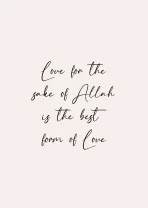 Love for the
sake of Allah
is the best
form of Love